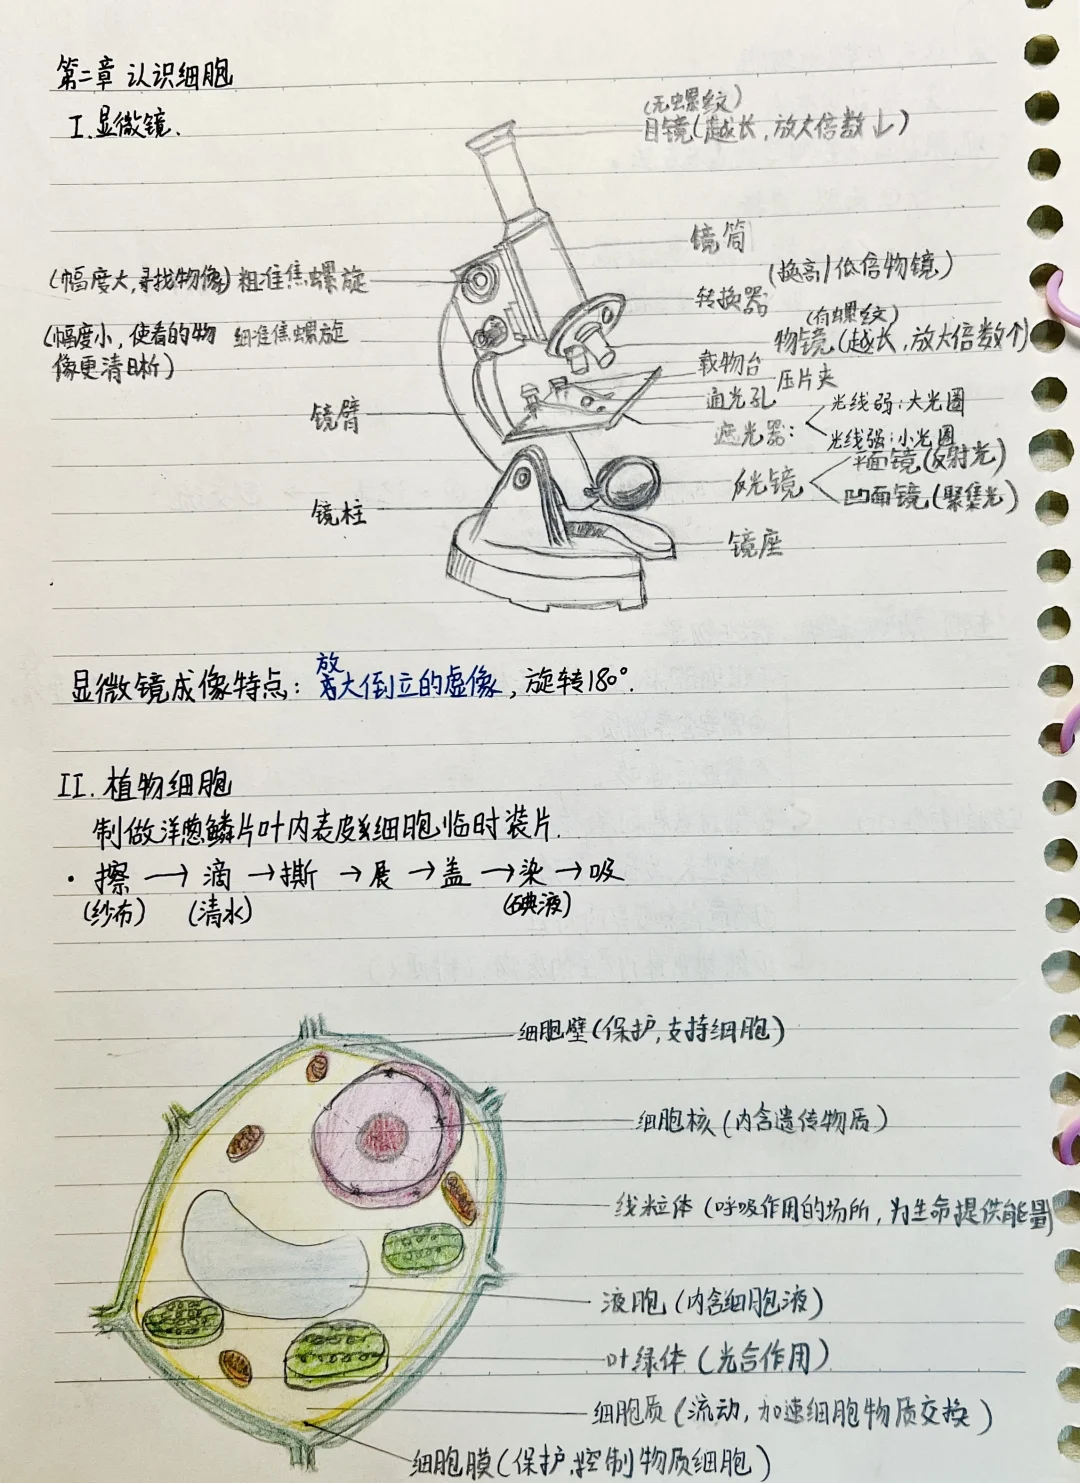 第二章 认识细胞
I.显微镜.
(无螺纹)
目镜(越长,放大倍数↓)
镜筒
(换高/低倍物镜)
(幅度大,寻找物像) 粗准焦螺旋
转换器
(有螺纹)
(幅度小,使看的物像更清晰) 细准焦螺旋
物镜(越长,放大倍数↑)
载物台
压片夹
通光孔
镜臂
遮光器: 光线弱:大光圈
光线强:小光圈
反光镜 平面镜(反射光)
凹面镜(聚集光)
镜柱
镜座
显微镜成像特点: 放大倒立的虚像,旋转180°.
II. 植物细胞
制做洋葱鳞片叶内表皮细胞临时装片.
· 擦 → 滴 → 撕 → 展 → 盖 → 染 → 吸
(纱布) (清水) (碘液)
细胞壁(保护,支持细胞)
细胞核(内含遗传物质)
线粒体(呼吸作用的场所,为生命提供能量)
液胞(内含细胞液)
叶绿体(光合作用)
细胞质(流动,加速细胞物质交换)
细胞膜(保护,控制物质细胞)